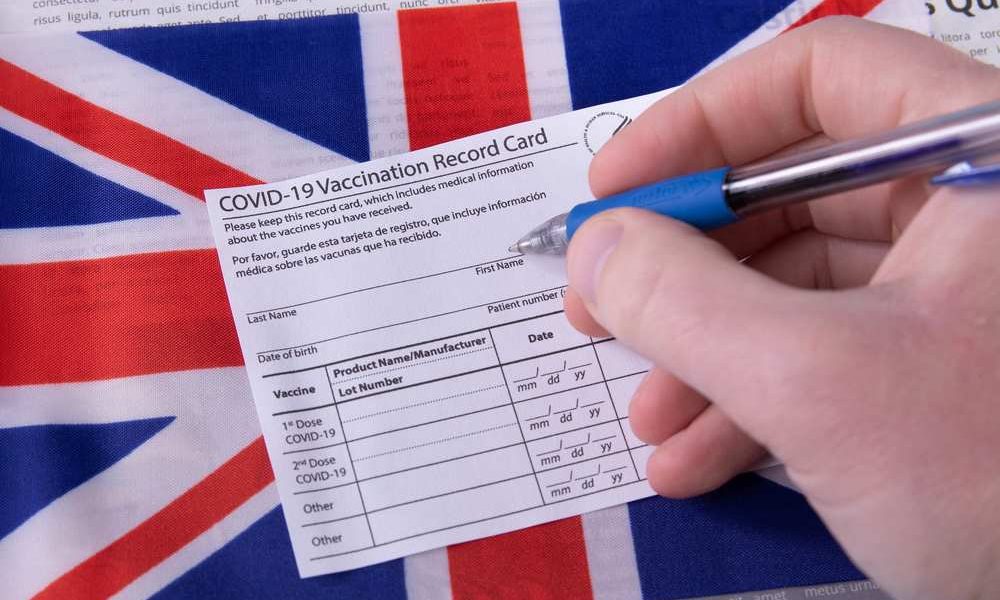 consectetur
risus ligula, rutrum quis tincidunt
eget ante. Sed et porttitor tincidunt, nunc
COVID-19 Vaccination Record Card
Please keep this record card, which includes medical information
about the vaccines you have received.
Por favor, guarde esta tarjeta de registro, que incluye información
médica sobre las vacunas que ha recibido.
Last Name First Name
Date of birth Patient number
Vaccine Product Name/Manufacturer Date
Lot Number
1st Dose
COVID-19
mm dd yy
2nd Dose
COVID-19
mm dd yy
Other
mm dd yy
Other
mm dd yy
litora
amet metus urna